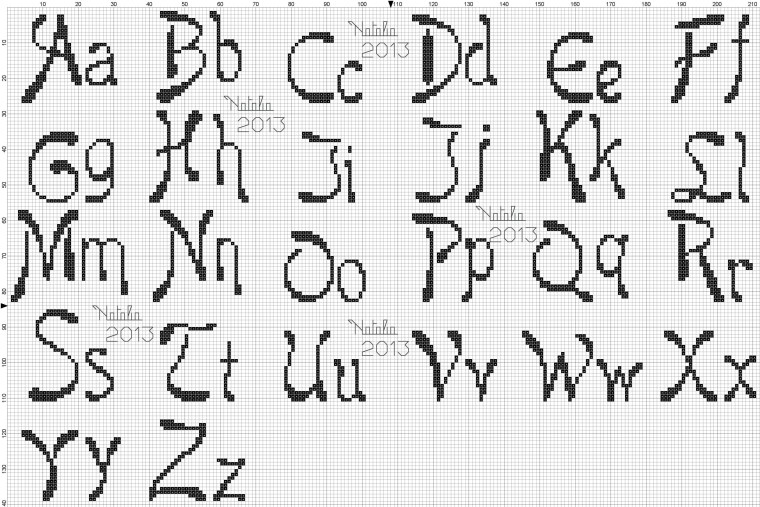 10 20 30 40 50 60 70 80 90 100 110 120 130 140 150 160 170 180 190 200 210
2013
Aa Bb Cc Dd Ee Ff
2013
Gg Hh Ii Jj Kk Ll
2013
Mm Nn Oo Pp Qq Rr
2013
2013
Ss Tt Uu Vv Ww Xx
Yy Zz
10
20
30
40
50
60
70
80
90
100
110
120
130
140